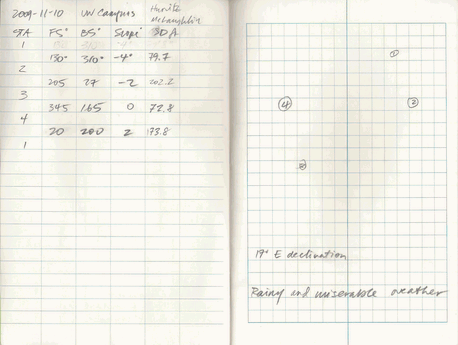 2009-11-10 UW Campus Hurvitz McLaughlin
STA FS° BS° Slope° SD ft
1
130° 310° -4° 79.7
2
205 27 -2 202.2
3
345 165 0 72.8
4
20 200 2 173.8
1
1
4
2
3
17° E declination
Rainy and miserable weather